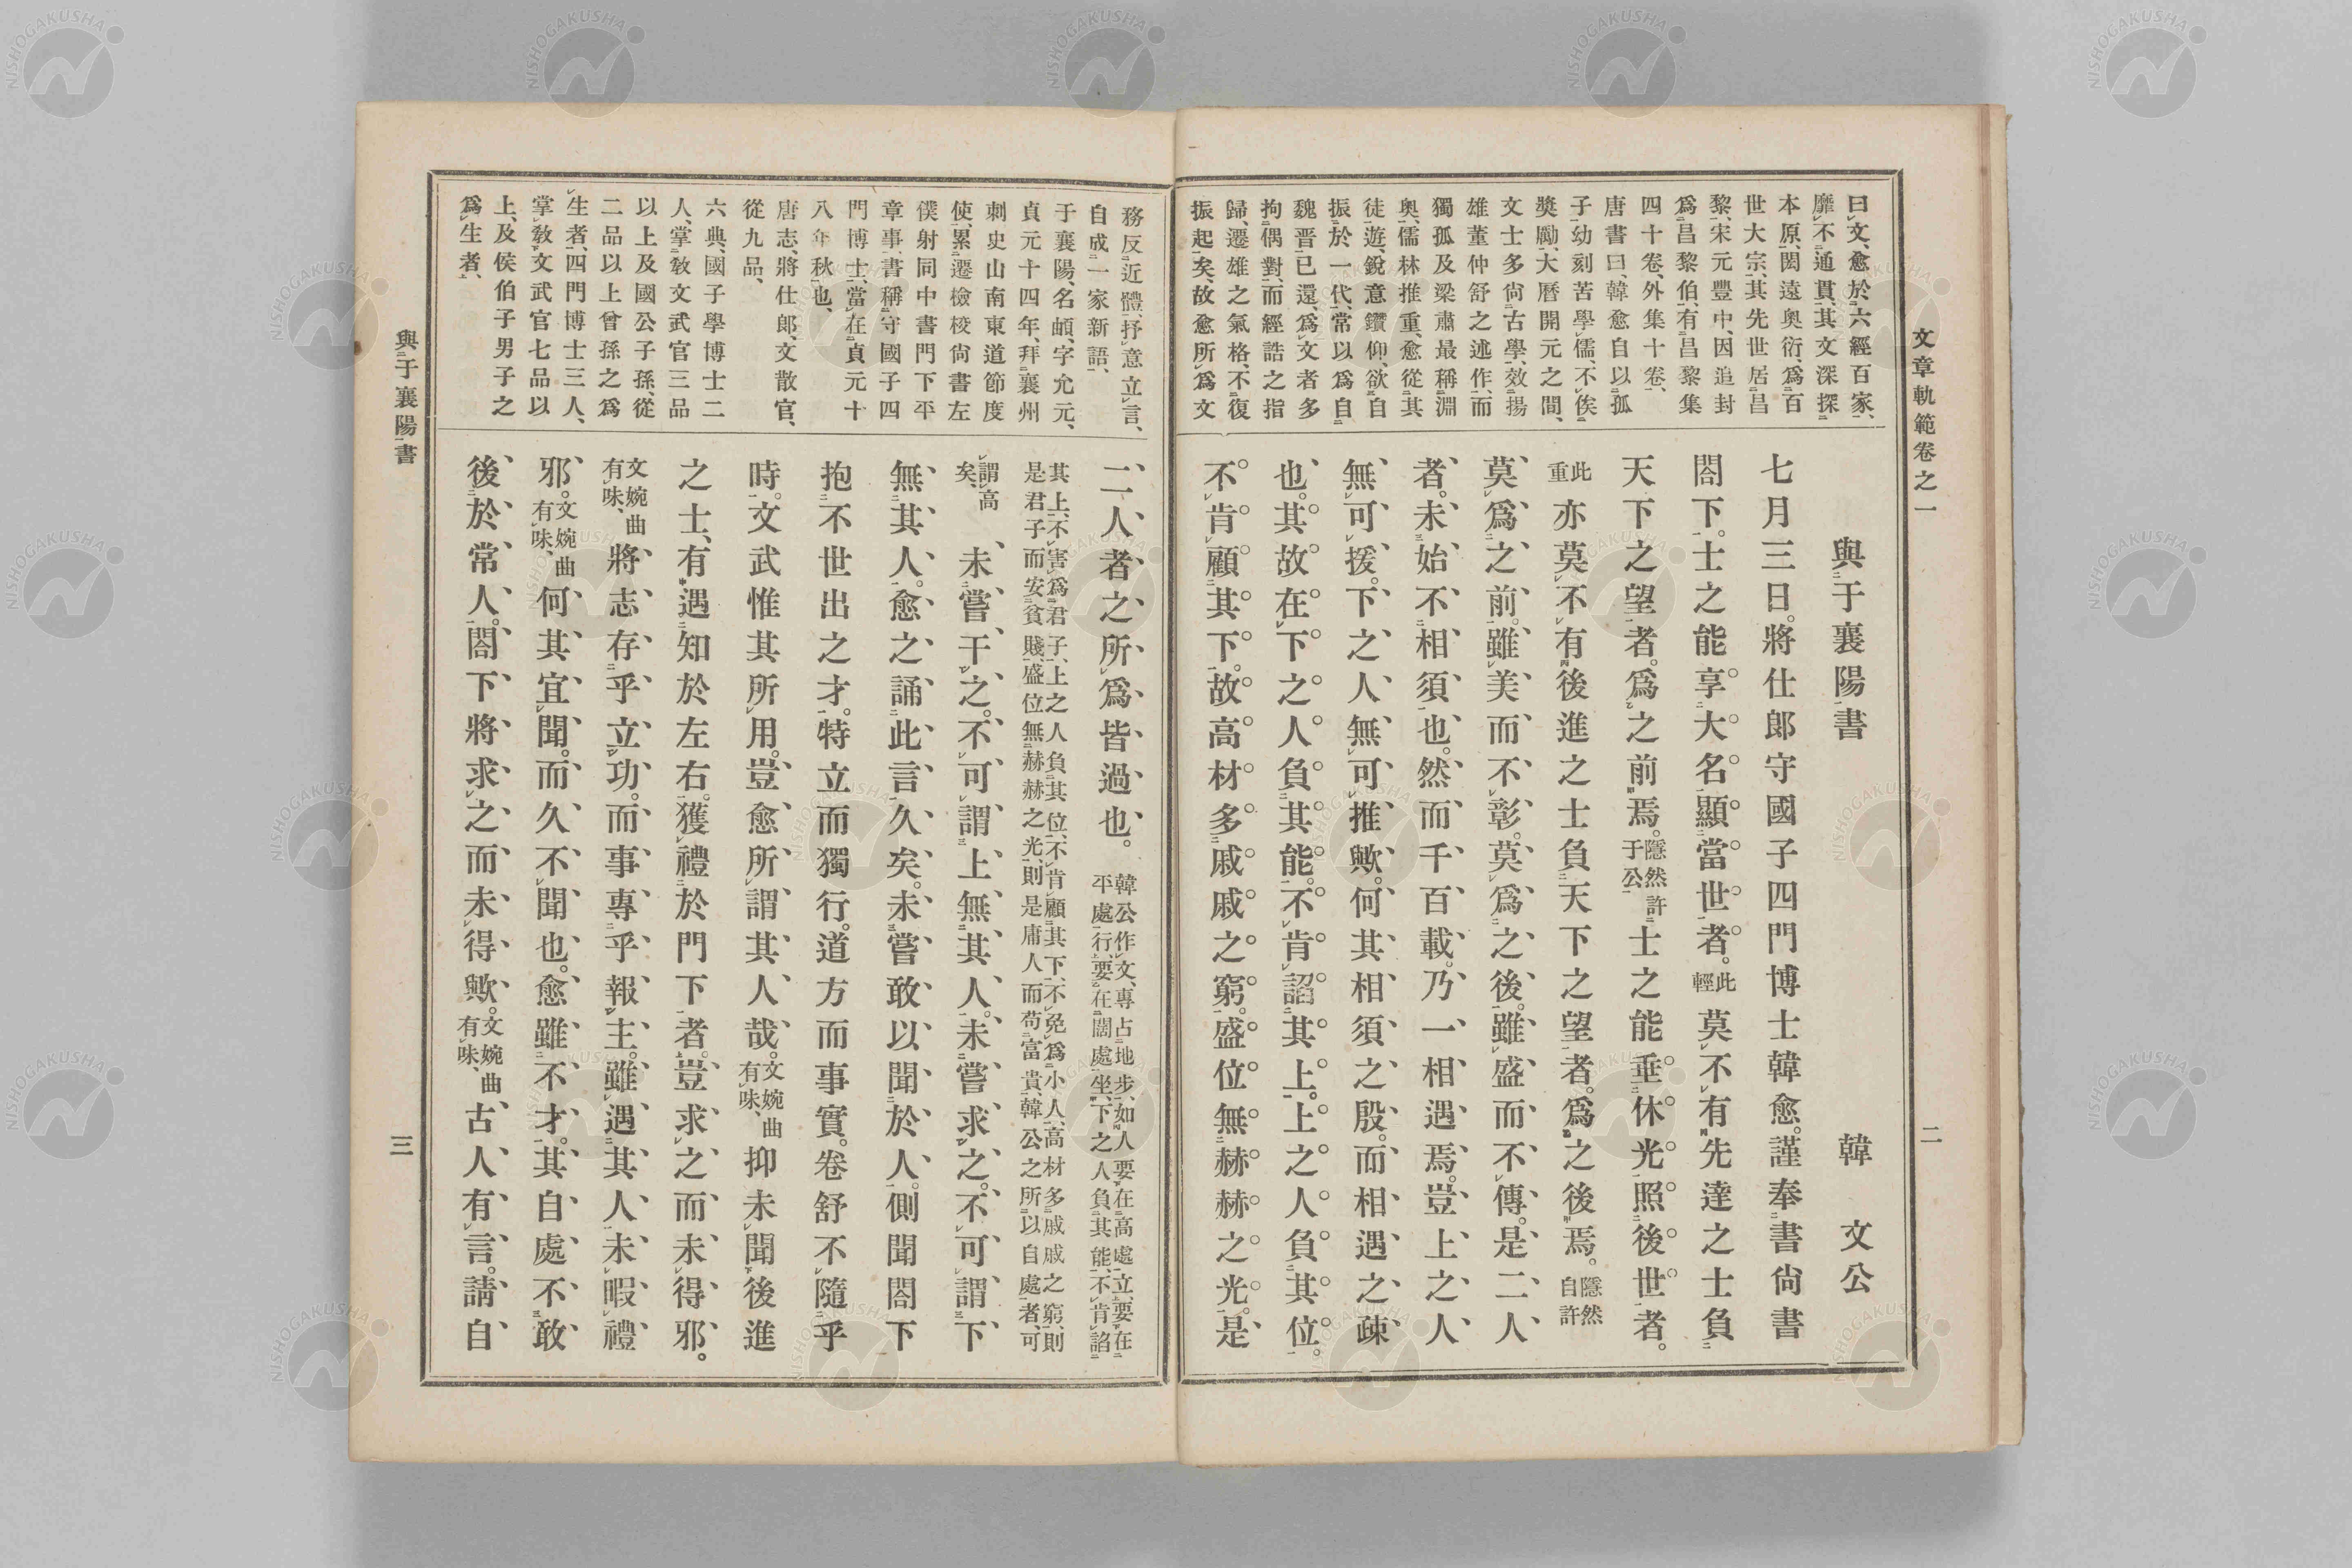 文章軌範卷之一
二
曰文、愈於六經百家、
靡不通貫、其文深探
本原、閎遠奧衍、爲百
世大宗、其先世居昌
黎、宋元豐中、因追封
爲昌黎伯、有昌黎集
四十卷、外集十卷、
唐書曰、韓愈自以孤
子、幼刻苦學儒、不俟
奬勵、大曆開元之間、
文士多尙古學、效揚
雄董仲舒之述作、而
獨孤及梁肅最稱淵
奧、儒林推重、愈從其
徒遊、銳意鑽仰、欲自
振於一代、常以爲自
魏晋已還、爲文者多
拘偶對、而經誥之指
歸、遷雄之氣格、不復
振起矣、故愈所爲文
與于襄陽書
韓文公
七月三日。將仕郞守國子四門博士韓愈。謹奉書尙書
閤下。士之能享大名。顯當世者。此輕莫不有先達之士負
天下之望者。爲之前焉。隱然許于公士之能垂休光。照後世者。
此重亦莫不有後進之士負天下之望者。爲之後焉。隱然自許
莫爲之前。雖美而不彰。莫爲之後。雖盛而不傳。是二人
者。未始不相須也。然而千百載。乃一相遇焉。豈上之人
無可援。下之人無可推歟。何其相須之殷。而相遇之疎
也。其故在下之人負其能。不肯諂其上。上之人負其位。
不肯顧其下。故高材多戚戚之窮。盛位無赫赫之光。是
務反近體、抒意立言、
自成一家新語、
于襄陽、名頔、字允元、
貞元十四年、拜襄州
刺史山南東道節度
使、累遷檢校尙書左
僕射同中書門下平
章事、書稱守國子四
門博士、當在貞元十
八年秋也、
唐志、將仕郞、文散官、
從九品、
六典、國子學博士二
人、掌敎文武官三品
以上及國公子孫、從
二品以上曾孫之爲
生者、四門博士三人、
掌敎文武官七品以
上、及侯伯子男子之
爲生者、
二人者之所爲皆過也。韓公作文、專占地步、如人要在高處立、要在平處行、要在闊處坐、下之人負其能、不肯諂
其上、不害爲君子、上之人負其位、不肯顧其下、不免爲小人、高材多戚戚之窮、則是君子而安貧賤、盛位無赫赫之光、則是庸人而苟富貴、韓公之所以自處者、可
謂高矣、未嘗干之。不可謂上無其人。未嘗求之。不可謂下
無其人。愈之誦此言久矣。未嘗敢以聞於人。側聞閤下
抱不世出之才。特立而獨行。道方而事實。卷舒不隨乎
時。文武惟其所用。豈愈所謂其人哉。文婉曲有味、抑未聞後進
之士、有遇知於左右。獲禮於門下者。豈求之而未得邪。
文婉曲有味、將志存乎立功。而事專乎報主。雖遇其人未暇禮
邪。文婉曲有味、何其宜聞。而久不聞也。愈雖不才。其自處不敢
後於常人。閤下將求之而未得歟。文婉曲有味、古人有言。請自
與于襄陽書
三